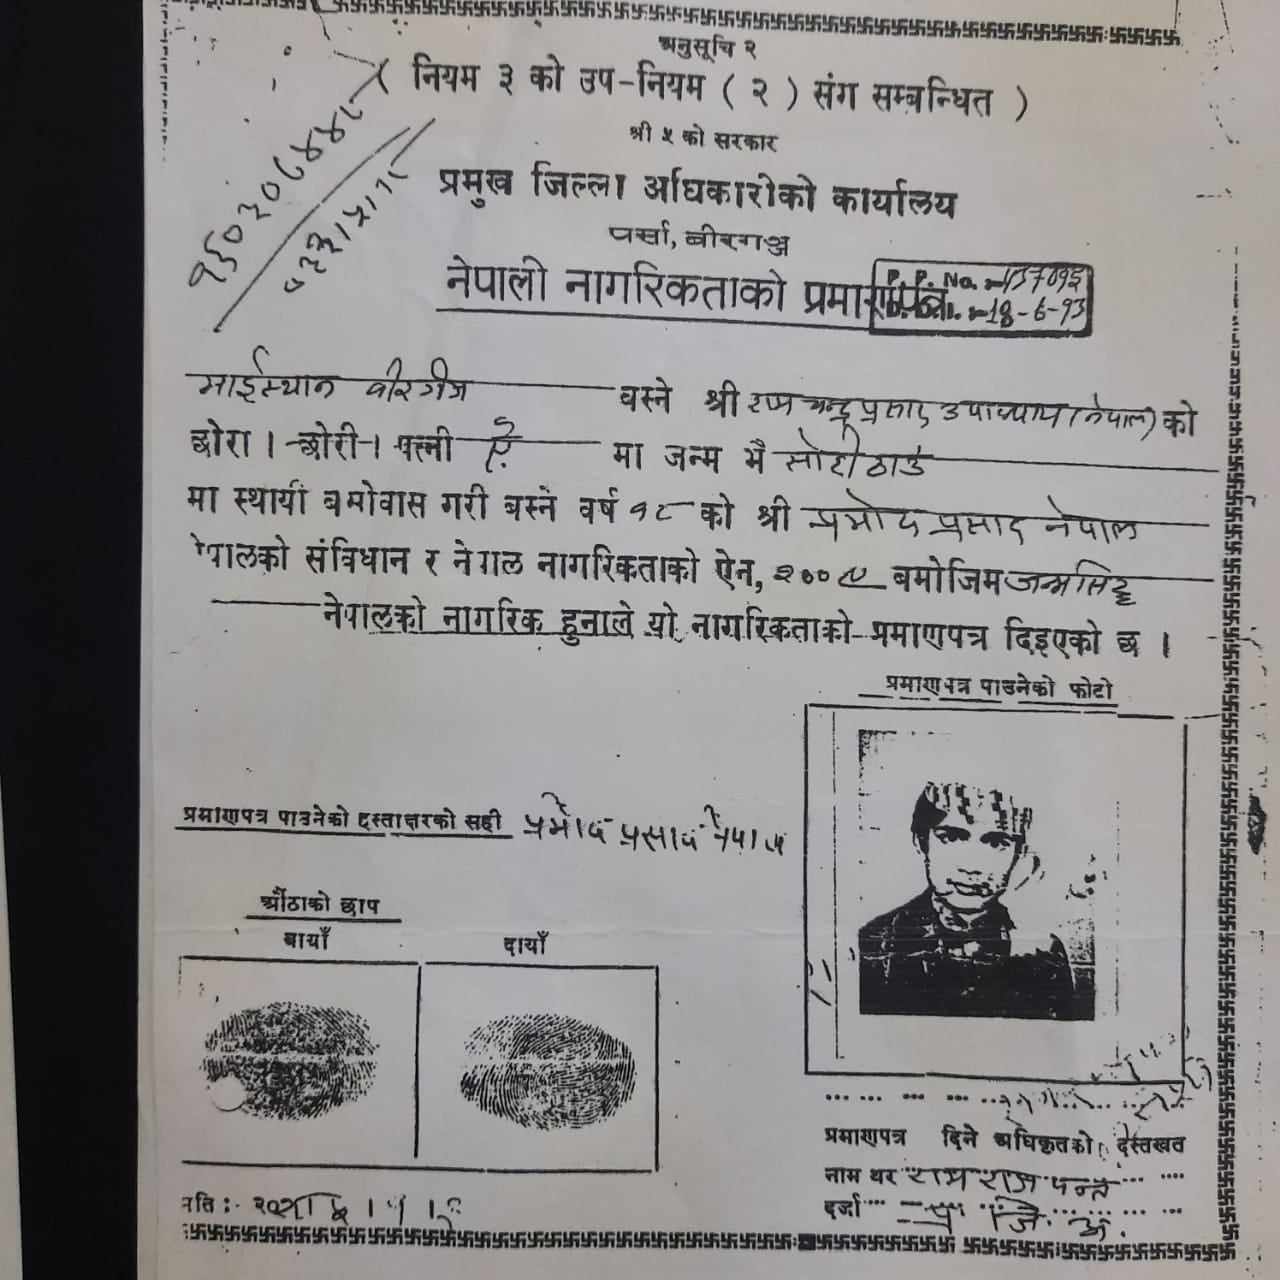 अनुसूचि २
( नियम ३ को उप-नियम ( २ ) संग सम्बन्धित )
श्री ५ को सरकार
प्रमुख जिल्ला अधिकारीको कार्यालय
पर्सा, बीरगञ्ज
नेपाली नागरिकताको प्रमाणपत्र
P. P. No.
18-6-93
माईस्थान वीरगंज बस्ने श्री रामचन्द्र प्रसाद उपाध्याय (नेपाल) को
छोरा । छोरी । पत्नी ऐ. मा जन्म भै
मा स्थायी बसोवास गरी बस्ने वर्ष १८ को श्री प्रमोद प्रसाद नेपाल
नेपालको संविधान र नेपाल नागरिकताको ऐन, बमोजिम जन्मसिद्ध
नेपालको नागरिक हुनाले यो नागरिकताको प्रमाणपत्र दिइएको छ ।
प्रमाणपत्र पाउनेको फोटो
प्रमाणपत्र पाउनेको दस्ताक्षरको सही प्रमोद प्रसाद नेपाल
औंठाको छाप
बायाँ दायाँ
प्रमाणपत्र दिने अधिकृतको दस्तखत
नाम थर रामराज पन्त
दर्जा प्र. जि. अ.
मिति :-